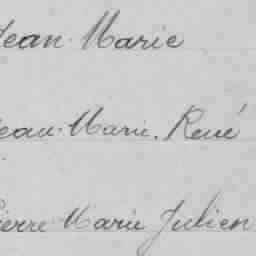 Jean Marie
Jean Marie. René
Pierre Marie Julien